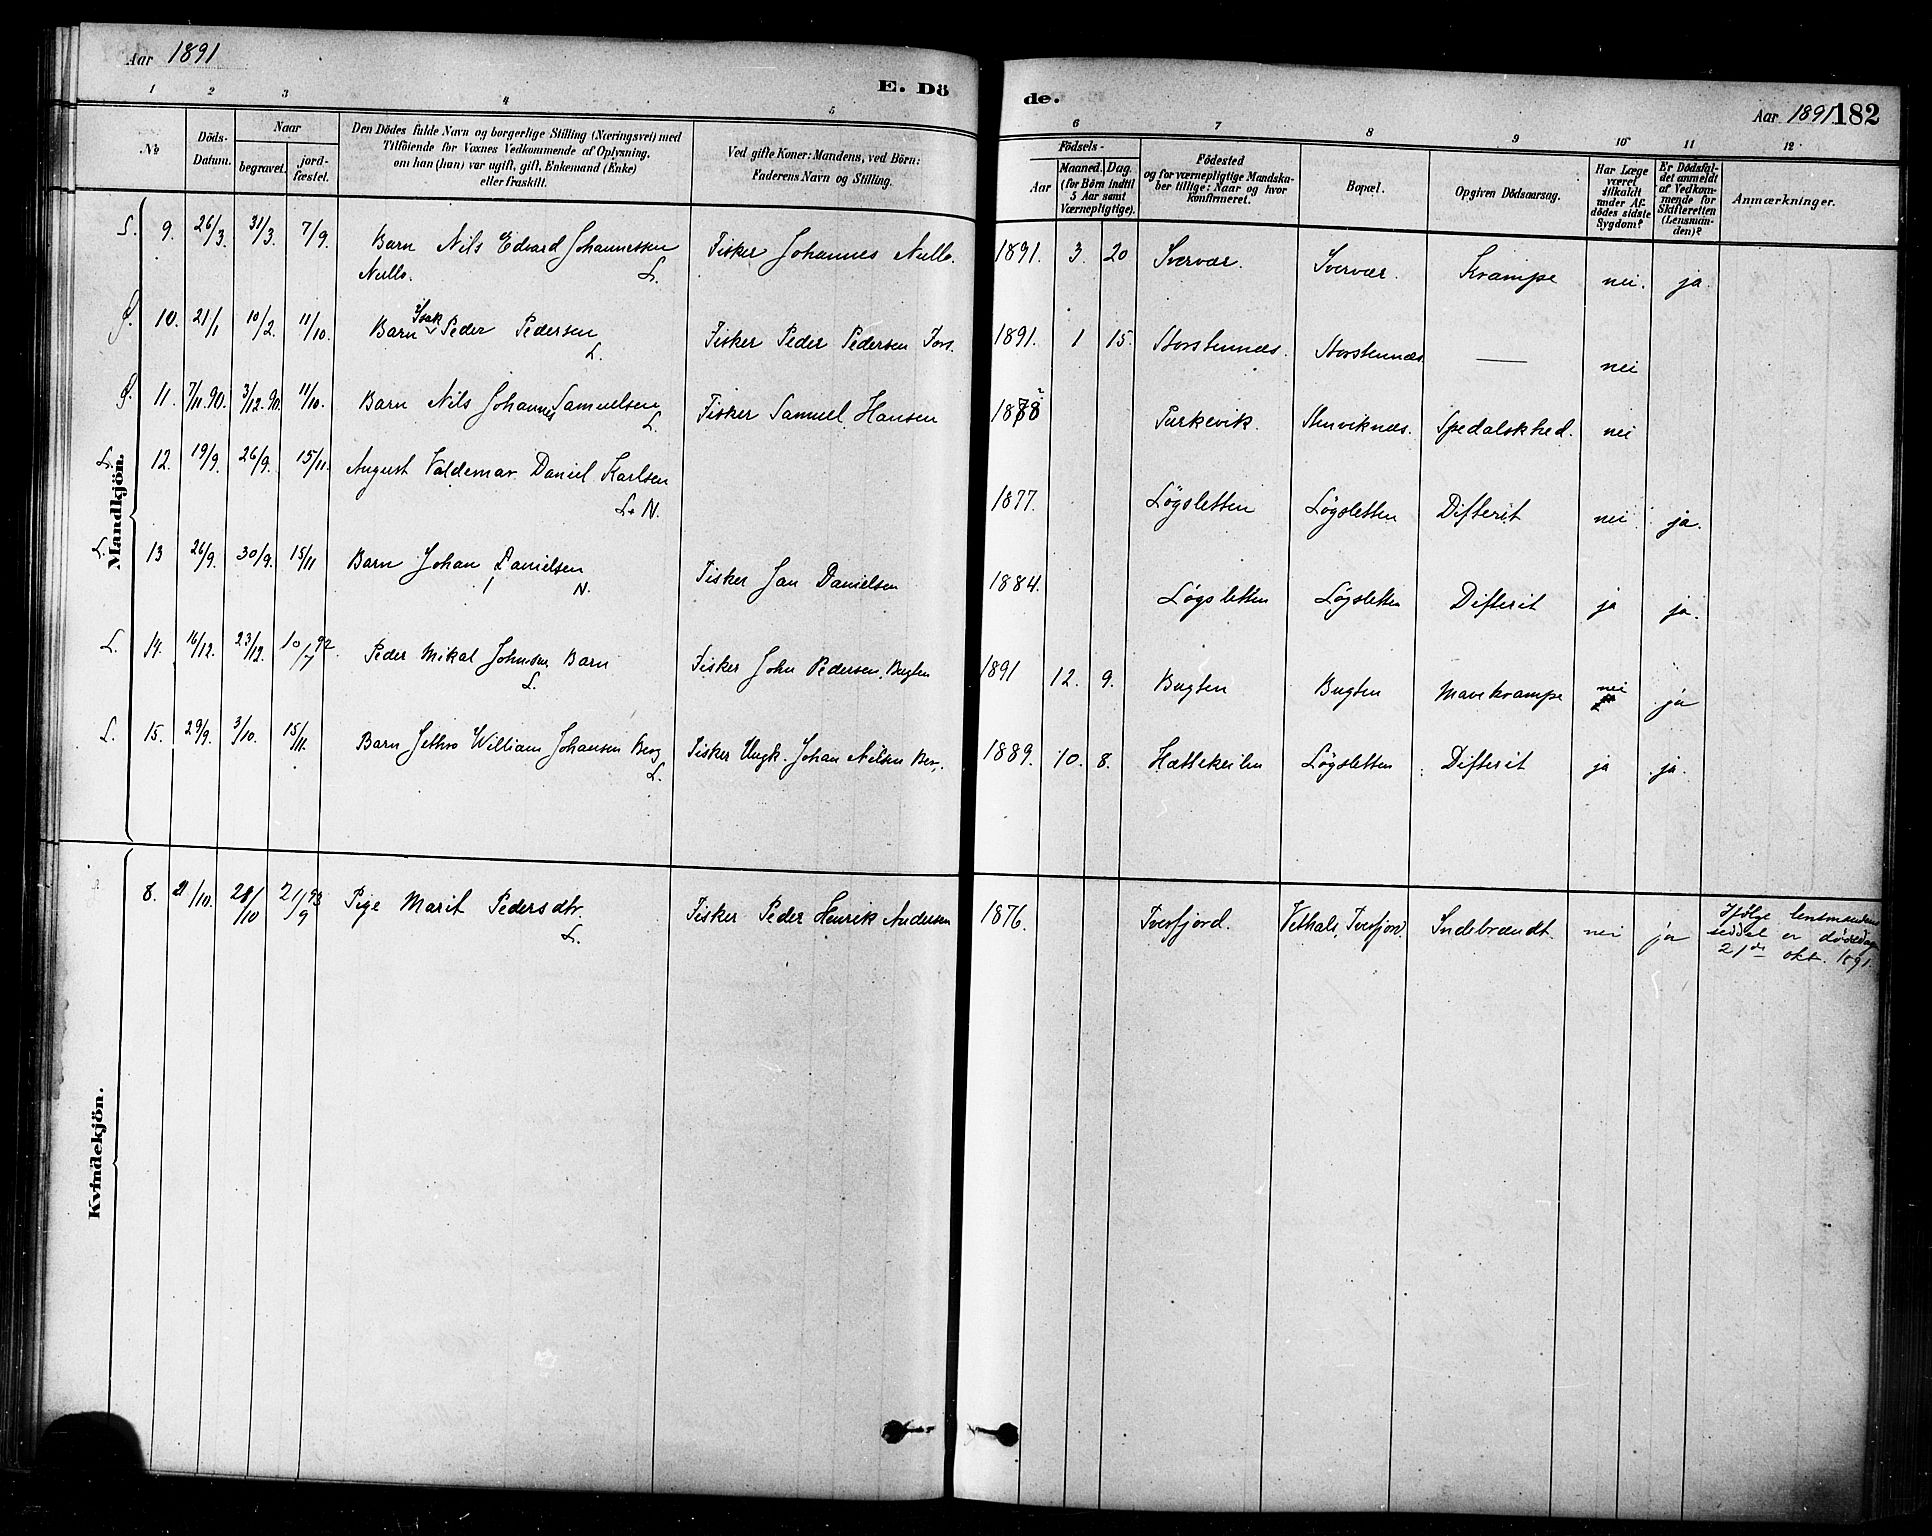 Aar 1891
E. Dö
de.
Aar 1891 182
1 2 3 4 5 6 7 8 9 10 11 12
№
Döds-Datum.
Naar
begravet.
jord-fæstet.
Den Dödes fulde Navn og borgerlige Stilling (Næringsvei) med
Tilföiende for Voxnes Vedkommende af Oplysning,
om han (hun) var ugift, gift, Enkemand (Enke)
eller fraskilt.
Ved gifte Koner: Mandens, ved Börn:
Faderens Navn og Stilling.
Födsels-
Aar
Maaned. Dag.
(for Börn indtil
5 Aar samt
Værnepligtige).
Födested
og for værnepligtige Mandska-
ber tillige: Naar og hvor
konfirmeret.
Bopæl.
Opgiven Dödsaarsag.
Har Læge
været
tilkaldt
under Af-
dödes sidste
Sygdom?
Er Dödsfal-
det anmeldt
af Vedkom-
mende for
Skifteretten
(Lensman-
den)?
Anmærkninger.
Mandkjön.
9. 26/3. 31/3. 7/9. Barn Nils Edvard Johannessen Fisker Johannes Nullo. 1891. 3. 20 Svervær. Svervær. Krampe nei. ja.
Nullo. L.
10. 21/1 10/2. 11/10. Barn Isak Peder Pedersen Fisker Peder Pedersen 1891. 1 15. Storstennæs. Storstennæs. — nei
L.
11. 7/11.90. 3/12.90. 11/10. Barn Nils Johannes Samuelsen Fisker Samuel Hansen Purkevik. Stenviknæs. Spedalskhed. nei
L.
L. 12. 19/9. 26/9. 15/11. August Valdemar Daniel Karlsen 1877. Løgsletten Løgsletten Difterit nei ja.
L. N.
L. 13 26/9. 30/9. 15/11 Barn Johan Danielsen Fisker Jan Danielsen 1884. Løgsletten Løgsletten Difterit ja ja.
N.
L. 14. 16/12. 23/12. 10/7 92. Peder Mikal Johnsen Barn Fisker John Pedersen, Bugten 1891 12. 9. Bugten Bugten Mavekrampe nei ja
L.
L. 15. 29/9. 3/10. 15/11. Barn Jethro William Johansen Berg Fisker Ungk. Johan Nilsen 1889. 10. 8. Hattekeilen Løgsletten Difterit ja ja.
L.
Kvindekjön.
8. 21/10. 28/10 21/9 93 Pige Marit Pedersdtr. Fisker Peder Henrik Andersen 1876. Tverfjord. Tverfjord. nei ja
L.
Ifølge lensmandens
seddel er dødsdagen
21de okt. 1891.